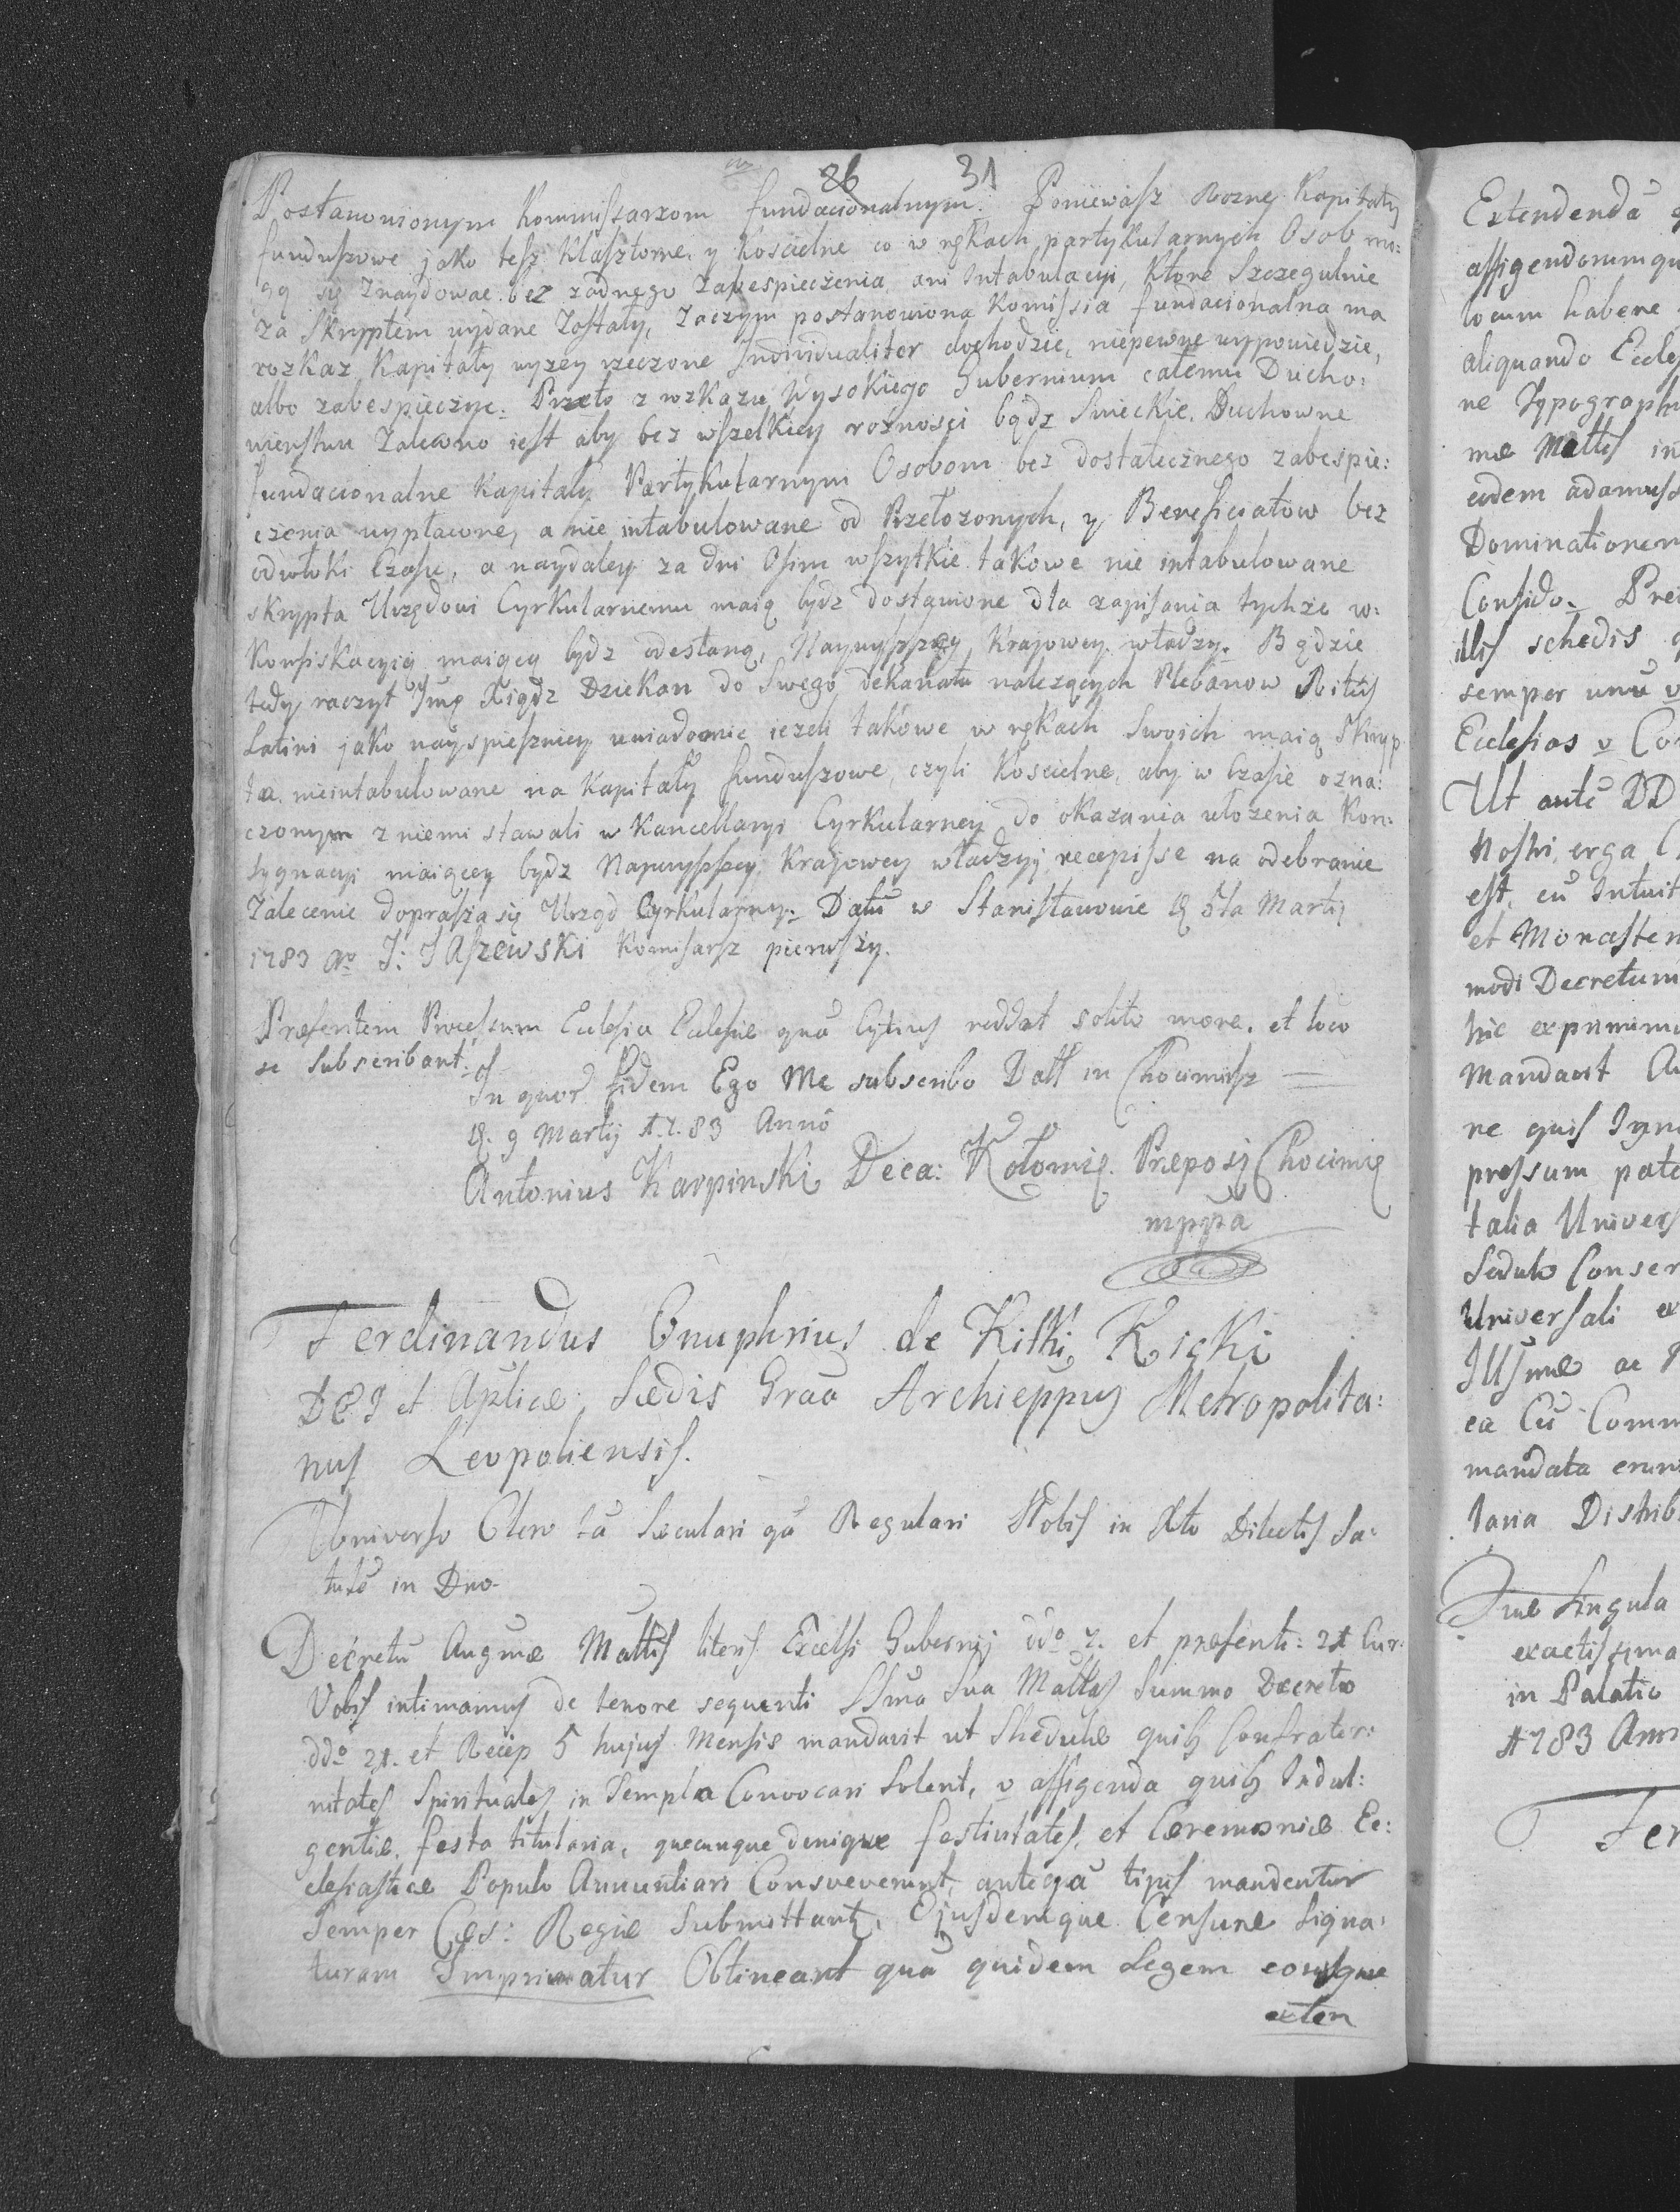 26 31
Postanowionym Kommissarzom fundacionalnym. Poniewasz Rozne Kapitały
funduszowe jako tesz Klasztorne y Koscielne co w rękach partykularnych Osob mo:
gą się Znaydowac bez zadnego zabespieczenia ani Intabulacyi, Ktore Szczegulnie
za Skryptem wydane Zostały, zaczym postanowiona Komissia fundacionalna ma
rozkaz Kapitały wyzey rzeczone Individualiter dochodzic, niepewne wypowiedzic,
albo zabespieczyc: Przeto z rozkazu Wysokiego Gubernium całemu Ducho:
wienstwu Zalecono iest aby bez wszelkiey roznosci bądz Swieckie, Duchowne
fundacionalne Kapitały Partykularnym Osobom bez dostatecznego zabespie:
czenia wypłacone, a nie intabulowane od Przełozonych, y Beneficiatow bez
odwłoki Czasu, a naydaley za dni Osim wszytkie takowe nie intabulowane
skrypta Urzędowi Cyrkularnemu maią bydz dostawione dla zapisania tychze w:
Konsiskacyią maiącą bydz odesłaną, Naywyższey Krajowey władzy. Będzie
tedy raczyt Jmę Xiądz Dziekan do Swego dekanatu nalezących Plebanow Ritus
Latini jako nayspieszniey uwiadomic iezeli takowe w rękach Swoich maią Skryp
ta nieintabulowane na Kapitały funduszowe, czyli Koscielne, aby w Czasie ozna:
czonym z niemi stawali w Kancellaryi Cyrkularney do okazania ułozenia Kon:
sygnacyi maiącey bydz Naywyższey Krajowey władzy; recepisse na odebranie
Zalecenie doprasza się Urząd Cyrkularny. Datũ w Stanisławowie d 5ta Martij
1783 Ao J: Jaszewski Komisarz pierwszy.
Præsentem Processum Ecclesia Eclesiæ quã Cytius reddat solito more. et loco
se subscribant.
In quor fidem Ego Me subscribo Datt in Chocimisz
d. 9 Martij 1783 Anno
Antonius Karpinski Deca: Kołomię. Præposi Chocimię
mppa
Ferdinandus Onuphrius de Kitki Kicki
DEI et Aplicæ Sædis Graã Archieppus Metropolita:
nus Leopoliensis.
Universo Clero tã Sæculari qã Regulari Nobis in Xto Dilectis Sa:
lutẽ in Dno.
Decretũ Augmæ Mattis literis Excelsi Gubernij ddo 7. et præsenti: 21 Cur:
Vobis intimamus de tenore sequenti SSma Sua Mattas Summo Decreto
ddo 21. et Recep 5 hujus Mensis mandavit ut Shedulæ quibȝ Confrater:
nitates Spirituales in Templa Convocari Solent, v affigenda quibȝ Indul:
gentiæ, festa titularia, quecunque denique festivitates, et Cæremoniæ Ec:
clesiasticæ Populo Annuntiari Consveverunt, anteqã tipis mandentur
Semper Cæs: Regiæ Submittant, Ejusdemque Censuræ Signa:
turam Imprimatur Obtineant quã quidem Legem eousque
exten
Extendendã
affigendorumqu
locum habere
aliquando Eccle
ne Typograph
mæ Mattis in
eidem adamuss
Dominationem
Confido. Pre
illis schedis
semper unũ v
Ecclesias v Co
Ut autẽ DD
Nostri, erga
est, cũ Intuit
et Monaster
modi Decretum
hic exprimimu
mandavit Au
ne quis Igno
pressum pate
talia Univers
Sedulo Conser
Universali ex
Illsmæ ac
ea Cũ Comm
mandata
laria Distrib
Quæ Singula
exactissima
in Palatio
1783 Ann
Fer